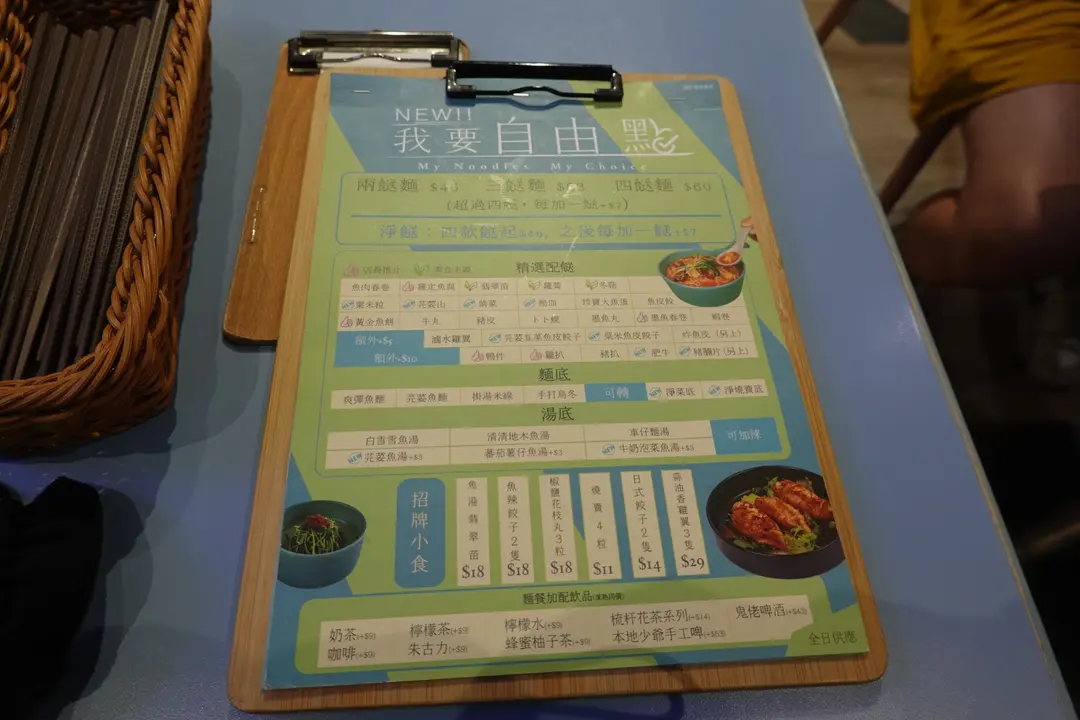 NEW!!
我要自由點
My Noodles My Choice
兩餸麵 $43 三餸麵 四餸麵 $60
(超過四餸，每加一餸+$7)
淨餸：四款餸起$46, 之後每加一餸+$7
店員推介 素食主義
精選配餸
魚肉春卷 羅定魚腐 翡翠苗 蘿蔔 冬菇
粟米粒 芫荽 珍寶大魚蛋 魚皮餃
黃金魚餅 牛丸 豬皮 卜卜蜆 墨魚丸 墨魚春卷 蝦卷
額外+$5 滷水雞翼 芫荽韮菜魚皮餃子 菜米魚皮餃子 炸魚皮 (另上)
額外+$10 鴨件 雞扒 豬扒 肥牛 豬腩片(另上)
麵底
爽彈魚麵 芫荽魚麵 掛湯米線 手打烏冬 可轉 淨菜底 淨燒賣底
湯底
白雪雪魚湯 清清地木魚湯 車仔麵湯 可加辣
芫荽魚湯+$3 蕃茄薯仔魚湯+$3 牛奶泡菜魚湯+$3
招牌小食
魚湯翡翠苗 $18
魚辣餃子2隻 $18
椒鹽花枝丸3粒 $18
燒賣4粒 $11
日式餃子2隻 $14
蒜油香雞翼3隻 $29
麵餐加配飲品
奶茶(+$9) 檸檬茶(+$9) 檸檬水(+$9) 梳打花茶系列(+$14) 鬼佬啤酒
咖啡(+$9) 朱古力(+$9) 蜂蜜柚子茶(+$9) 本地少爺手工啤
全日供應